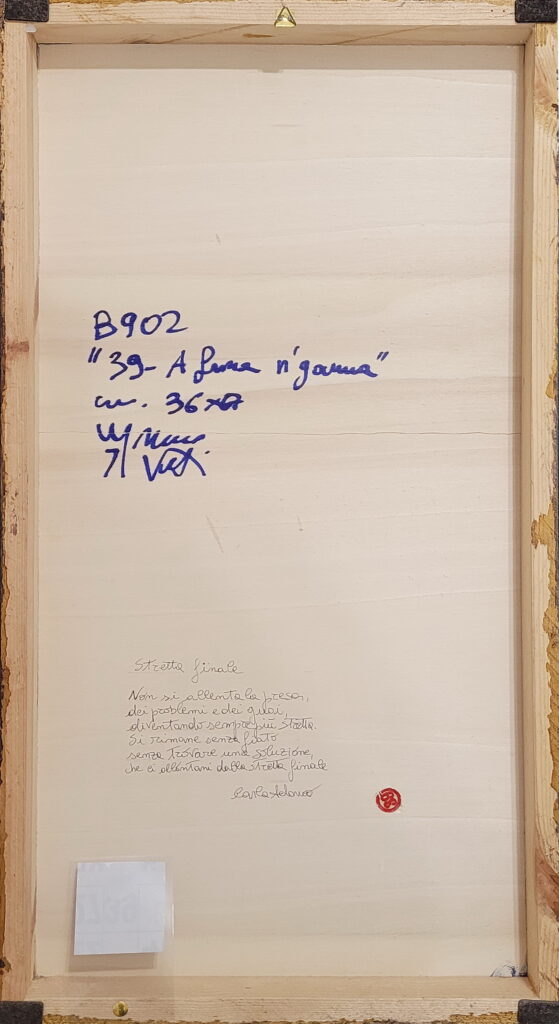 B902
"39- A fune n'ganna"
cm. 36x
Stretta finale
Non si allenta la presa,
dei problemi e dei guai,
diventando sempre più stretta.
Si rimane senza fiato
senza trovare una soluzione,
che ci allontani dalla stretta finale